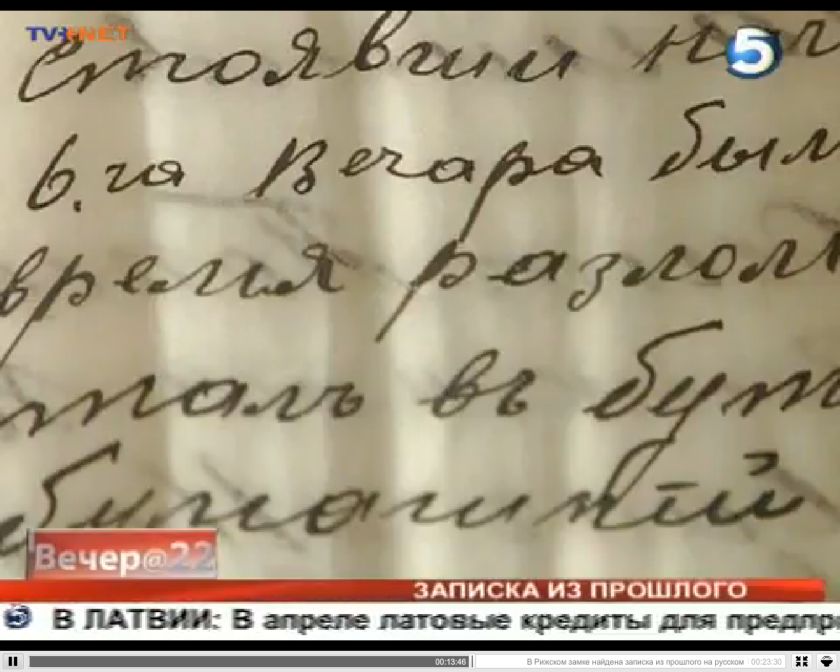 TV NET
5
стоявши
6.га Вечара был
время разлом
талъ въ бут
Вечер@22
ЗАПИСКА ИЗ ПРОШЛОГО
5 В ЛАТВИИ: В апреле латовые кредиты для предпр
00:13:46 В Рижском замке найдена записка из прошлого на русском 00:23:30